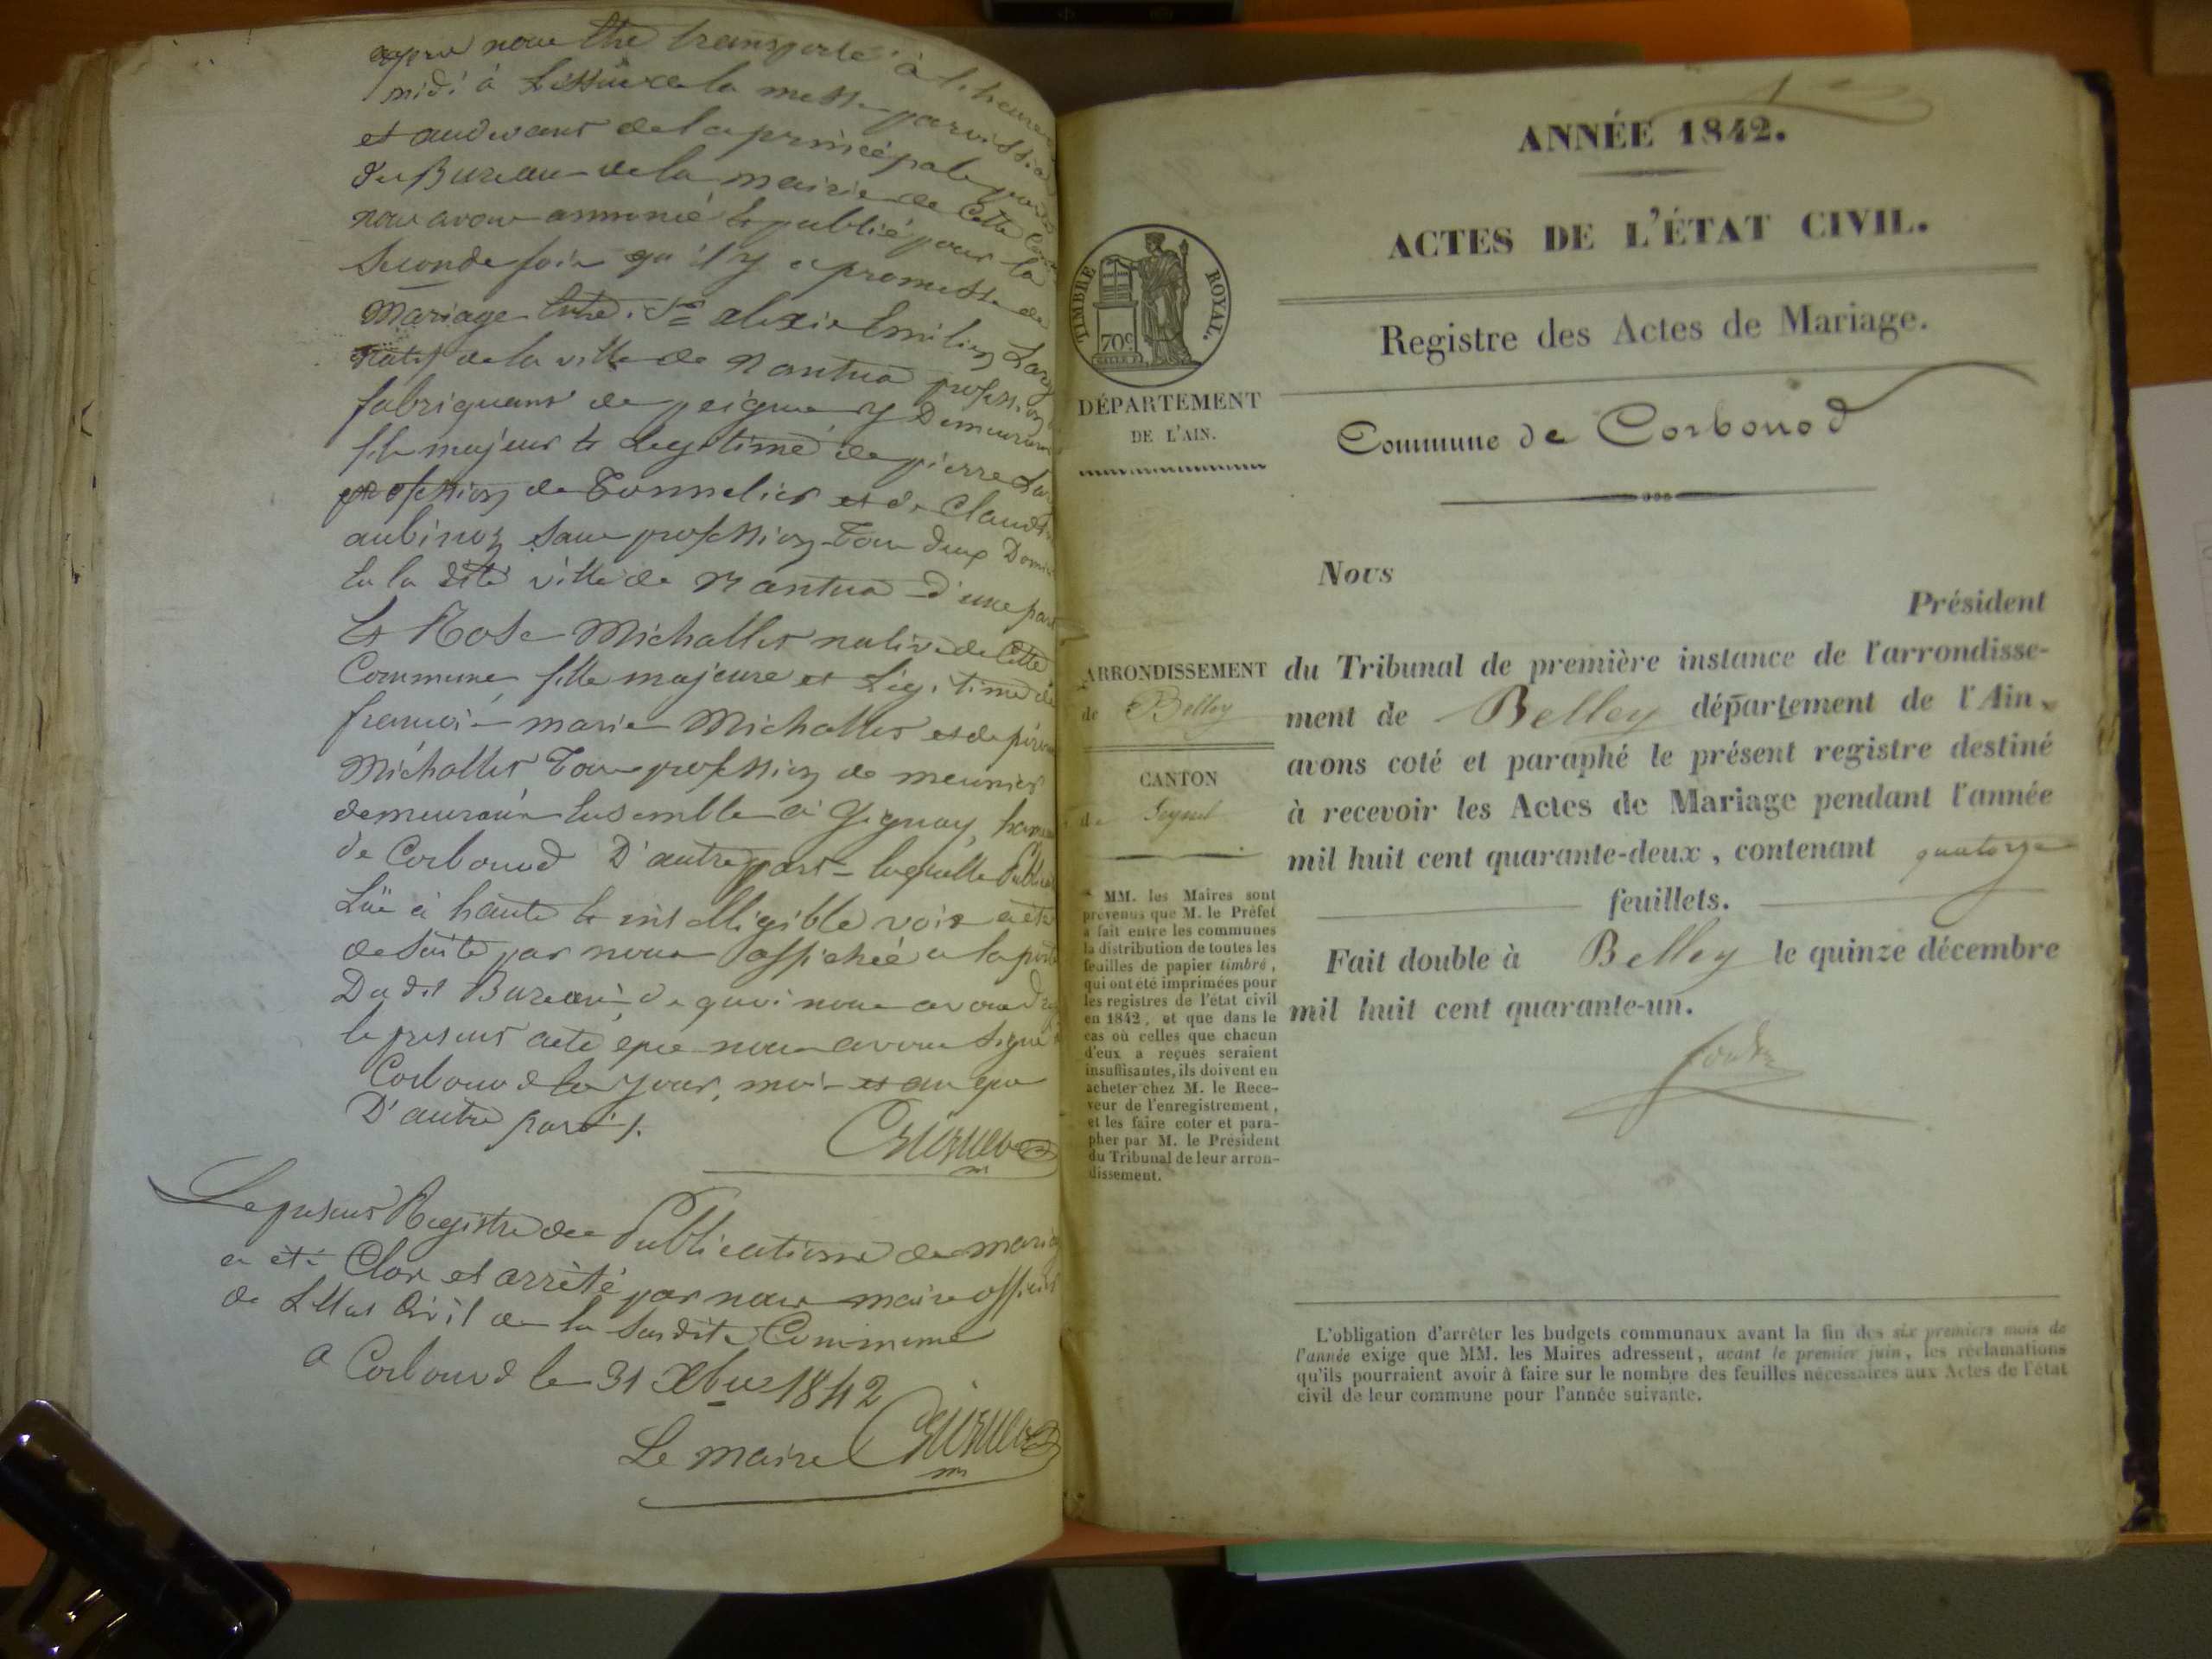 après nous être transporté à
midi à L'issüe de la messe paroissia
et audevant de la principale porte
du Bureau de la mairie de Cette Com
nous avons annoncé et publié pour la
Seconde fois qu'il y a promesse de
Mariage Entre Sr alexis Emilien
natif de la ville de Nantua profession
fabriquant de peignes y Demeurant
fils majeur et Legitime de pierre
profession de Tonnelier et de Claudine
aubinoz sans profession Tous deux Domi
En la dite ville de Nantua d'une part
Et Rose Michallet native de Cette
Commune fille majeure et Légitime de
francois marie Michallet et de
Michallet Tous profession de meunier
demeurants Ensemble à Gignay, hameau
de Corbonod D'autre part - laquelle Publica
Lüe à haute et intelligible voix a été
de suite par nous affichée a la porte
Du dit Bureau, de quoi nous avons
le présent acte que nous avons signé
Corbonod les jour, mois et an que
D'autre part ./.
Le présent Registre des Publications de maria
a été Clos et arrêté par nous maire officier
de L'Etat Civil de la Susdite Commune
a Corbonod le 31 Xbre 1842
Le maire
ANNÉE 1842.
ACTES DE L'ÉTAT CIVIL.
Registre des Actes de Mariage.
Commune de Corbonod
TIMBRE ROYAL.
70c
DÉPARTEMENT
DE L'AIN.
ARRONDISSEMENT
de Belley
CANTON
de Seyssel
MM. les Maires sont
prévenus que M. le Préfet
a fait entre les communes
la distribution de toutes les
feuilles de papier timbré,
qui ont été imprimées pour
les registres de l'état civil
en 1842, et que dans le
cas où celles que chacun
d'eux a reçues seraient
insuffisantes, ils doivent en
acheter chez M. le Rece-
veur de l'enregistrement,
et les faire coter et para-
pher par M. le Président
du Tribunal de leur arron-
dissement.
Nous
Président
du Tribunal de première instance de l'arrondisse-
ment de Belley département de l'Ain,
avons coté et paraphé le présent registre destiné
à recevoir les Actes de Mariage pendant l'année
mil huit cent quarante-deux, contenant quatorze
feuillets.
Fait double à Belley le quinze décembre
mil huit cent quarante-un.
L'obligation d'arrêter les budgets communaux avant la fin des six premiers mois de
l'année exige que MM. les Maires adressent, avant le premier juin, les réclamations
qu'ils pourraient avoir à faire sur le nombre des feuilles nécessaires aux Actes de l'état
civil de leur commune pour l'année suivante.